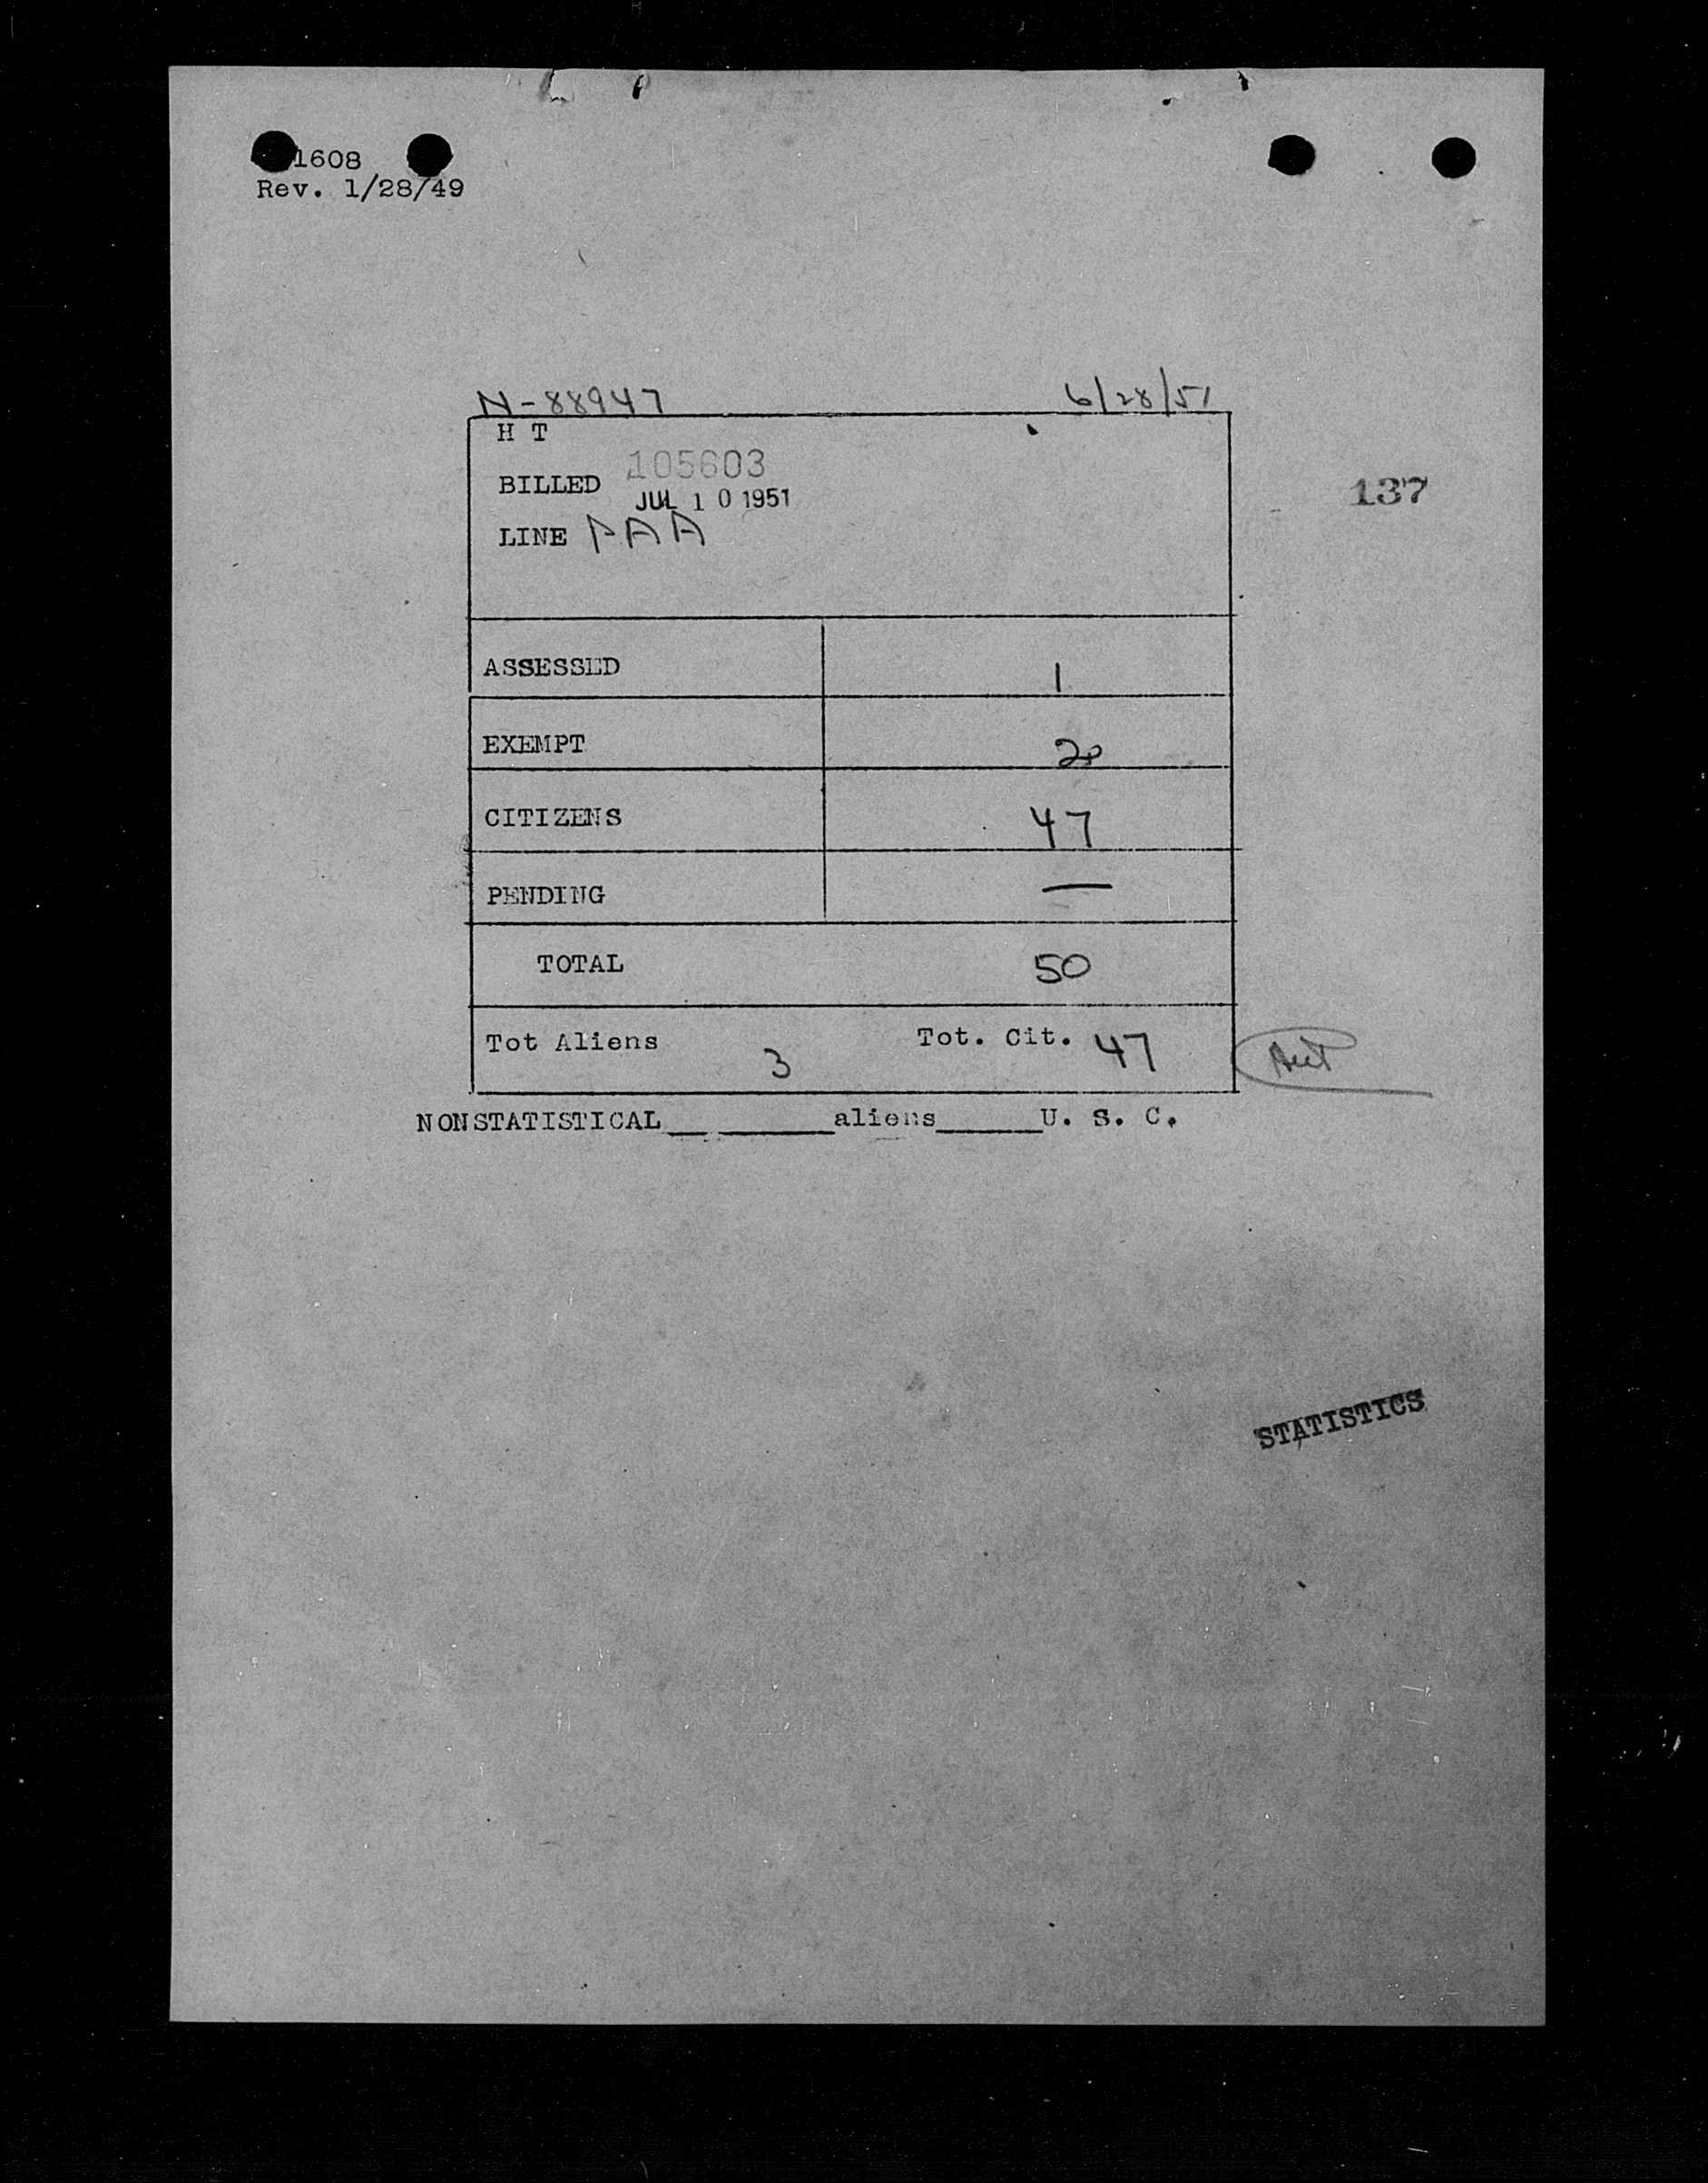 1608
Rev. 1/28/49
N-88947 6/28/51
H T
BILLED 105603
JUL 10 1951
137
LINE PAA
ASSESSED 1
EXEMPT 2
CITIZENS 47
PENDING —
TOTAL 50
Tot Aliens 3 Tot. Cit. 47
NONSTATISTICAL__ ______aliens______U. S. C.
STATISTICS